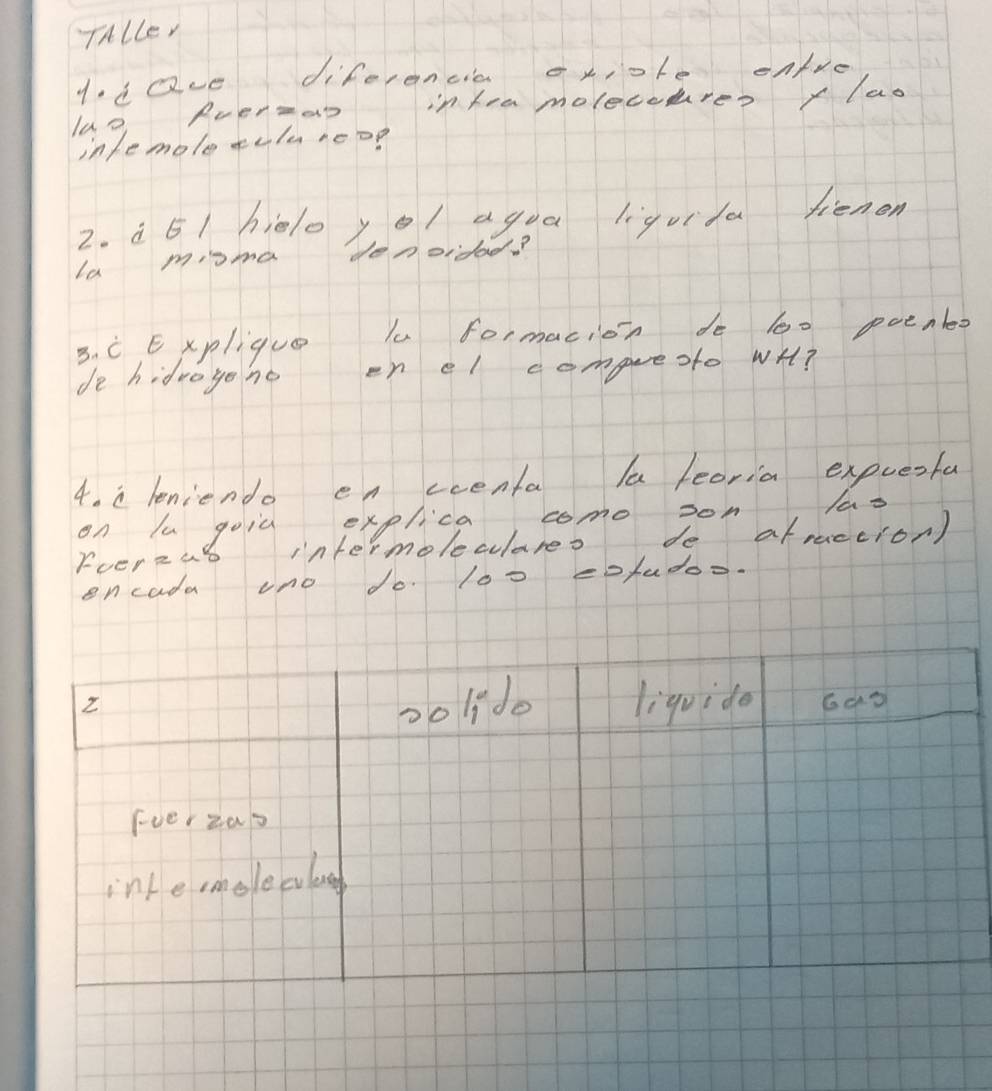 TAller
1. ¿ Que diferencia existe entre
las fuerzas intra moleculares y las
intemoleculares?
2. ¿ El hielo y el agua liquida tienen
la misma densidad?
3. ¿ Explique la formación de los puentes
de hidrogeno en el compuesto WH?
4. ¿ teniendo en cuenta la teoria expuesta
en la guia explica como son las
Fuerzas intermoleculares de atraccion)
encada uno de los estados.
z solido liquido Gas
Fuerzas
intermoleculares